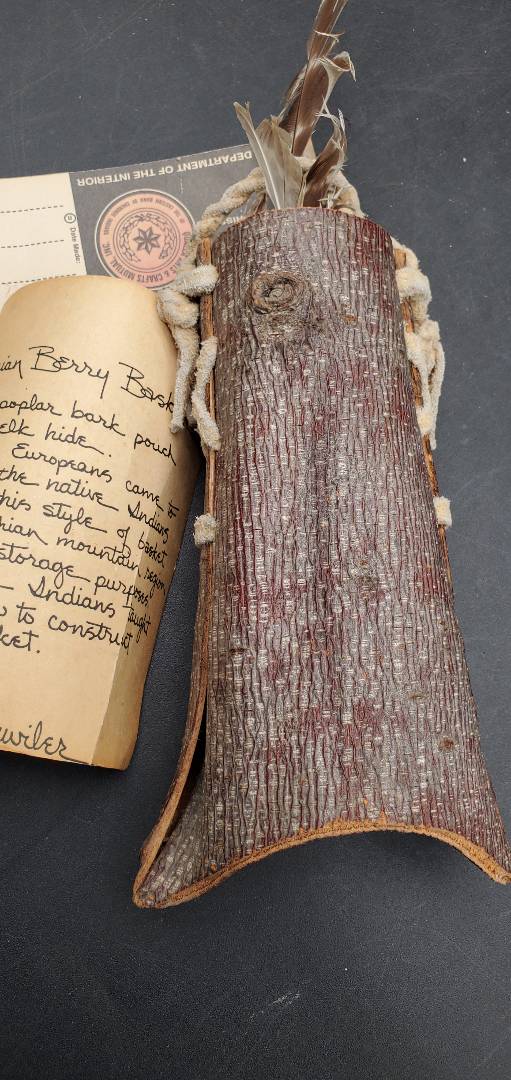 DEPARTMENT OF THE INTERIOR
Date Made:
& CRAFTS MUTUAL, INC.
ian Berry Bask
poplar bark pouch
elk hide.
Europeans came to
the native Indians
his style of basket
hian mountain region
storage purposes.
Indians taught
to construct
ket.
uwiler